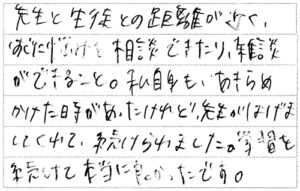 先生と生徒との距離が近く、
相談できたり、雑談
ができること。私自身も、あきらめ
かけた時があったけれど、先生がはげま
してくれて、続けられました。学習を
続けて本当に良かったです。